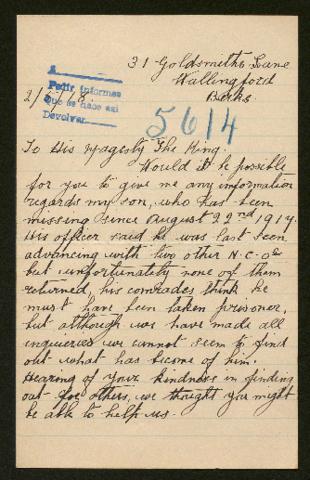 31 Goldsmiths Lane
Wallingford
Berks.
A
Pedir informes
Que se hace así
Devolver
2/3/18.
5614
To His Magesty The King.
Would it be possible
for you to give me any information
regards my son, who has been
missing since August 22nd 1917.
His officer said he was last seen
advancing with two other N.C.Os
but unfortunately none of them
returned, his comrades think he
must have been taken prisoner,
but although we have made all
inquieries we cannot seem to find
out what has become of him.
Hearing of your kindness in finding
out for others, we thought you might
be able to help us.